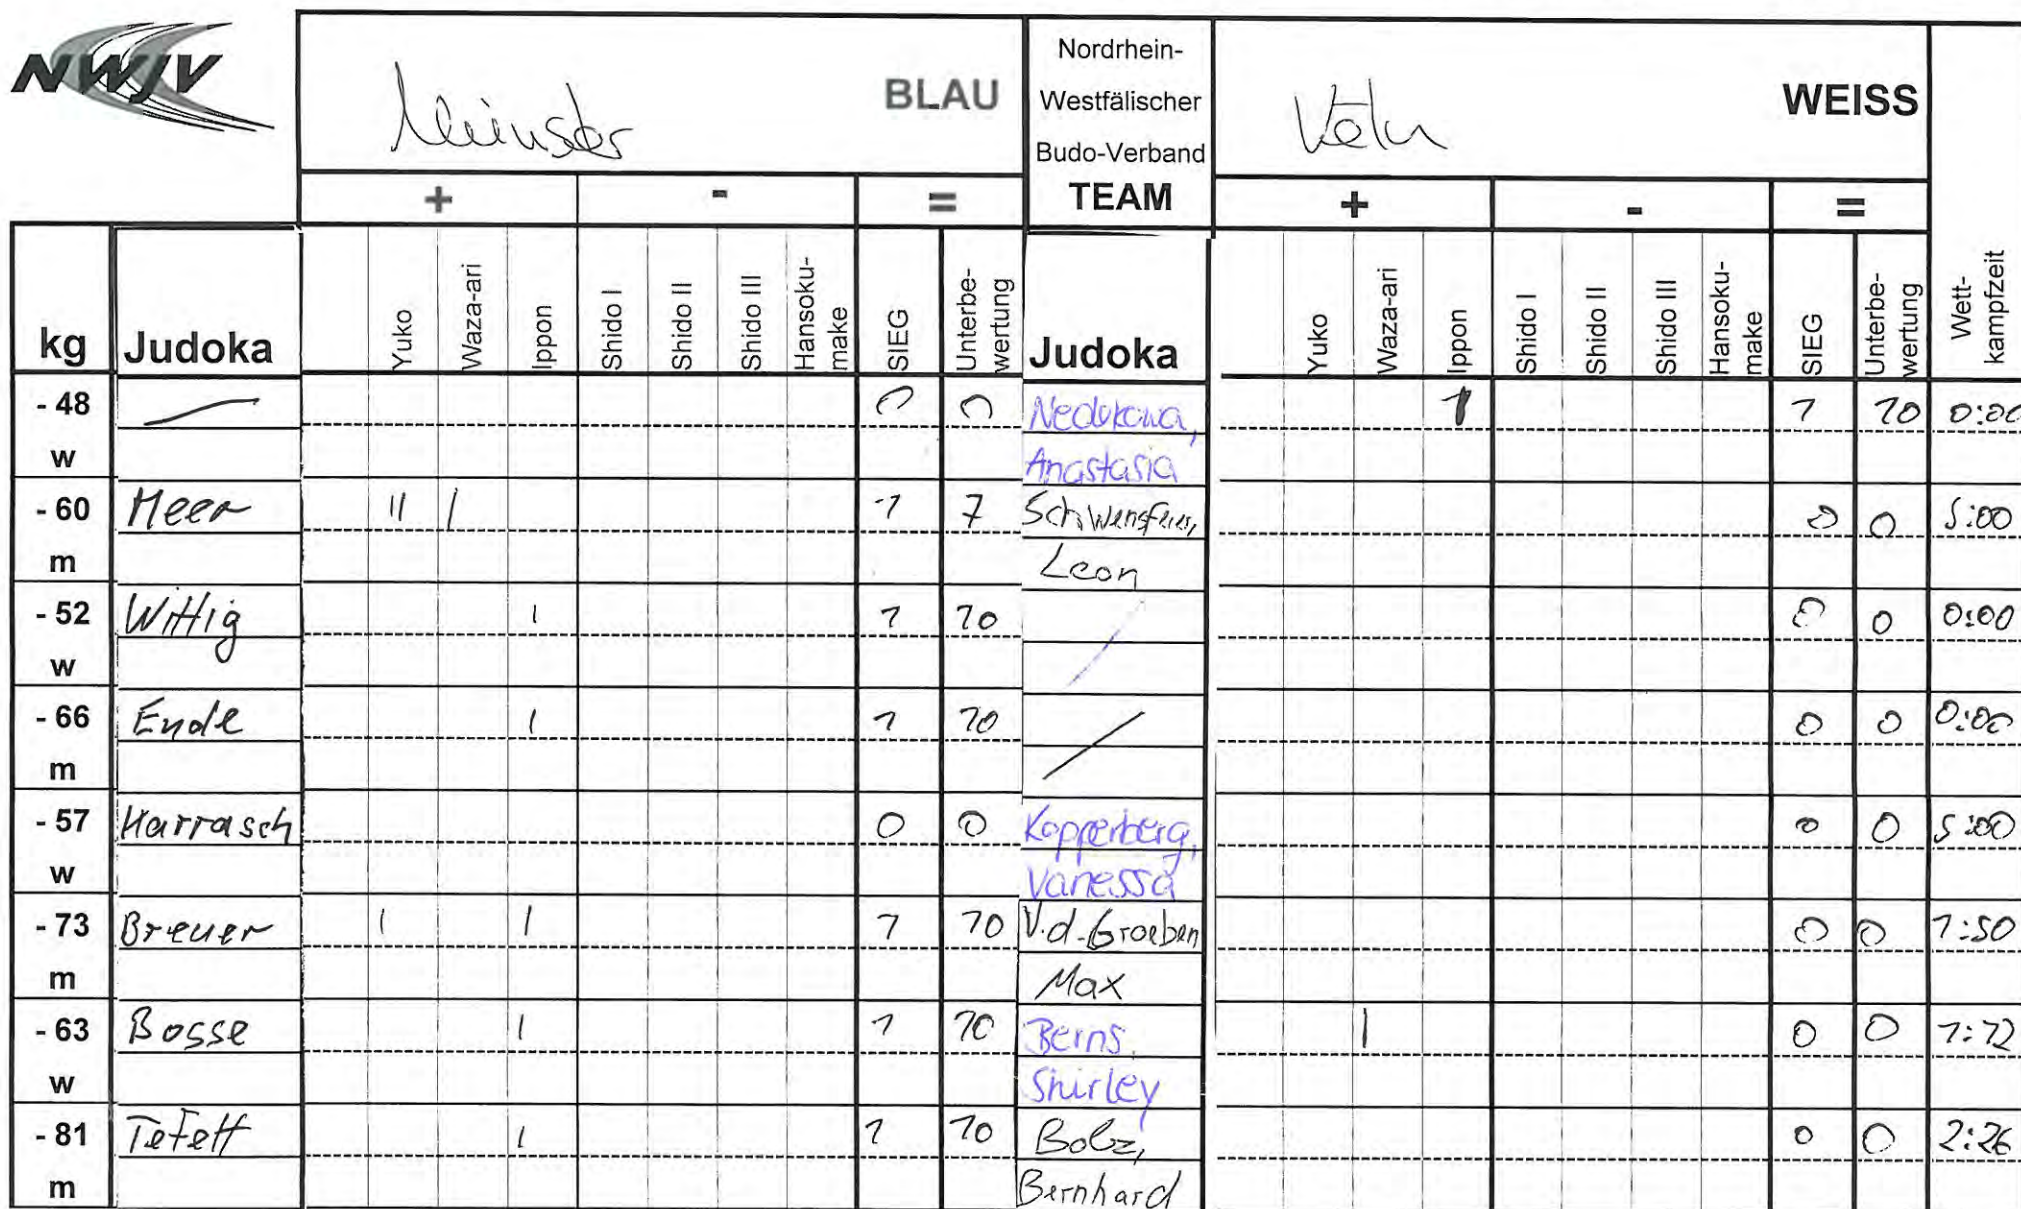 NWJV
Münster BLAU
Nordrhein-
Westfälischer
Budo-Verband
TEAM
Köln WEISS
+ - = + - =
kg Judoka Yuko Waza-ari Ippon Shido I Shido II Shido III Hansoku-make SIEG Unterbe-wertung Judoka Yuko Waza-ari Ippon Shido I Shido II Shido III Hansoku-make SIEG Unterbe-wertung Wett-kampfzeit
- 48 0 0 Nedokowa, 1 1 10 0:00
w Anastasia
- 60 Meer II I 1 7 0 0 5:00
m Leon
- 52 Wittig I 1 10 0 0 0:00
w
- 66 Ende I 1 10 0 0 0:00
m
- 57 Harrasch 0 0 Kopperberg, 0 0 5:00
w Vanessa
- 73 Breuer I I 1 10 V.d.Groeben 0 0 1:50
m Max
- 63 Bosse I 1 10 Berns, I 0 0 1:12
w Shirley
- 81 Tefett I 1 10 Bolz, 0 0 2:26
m Bernhard